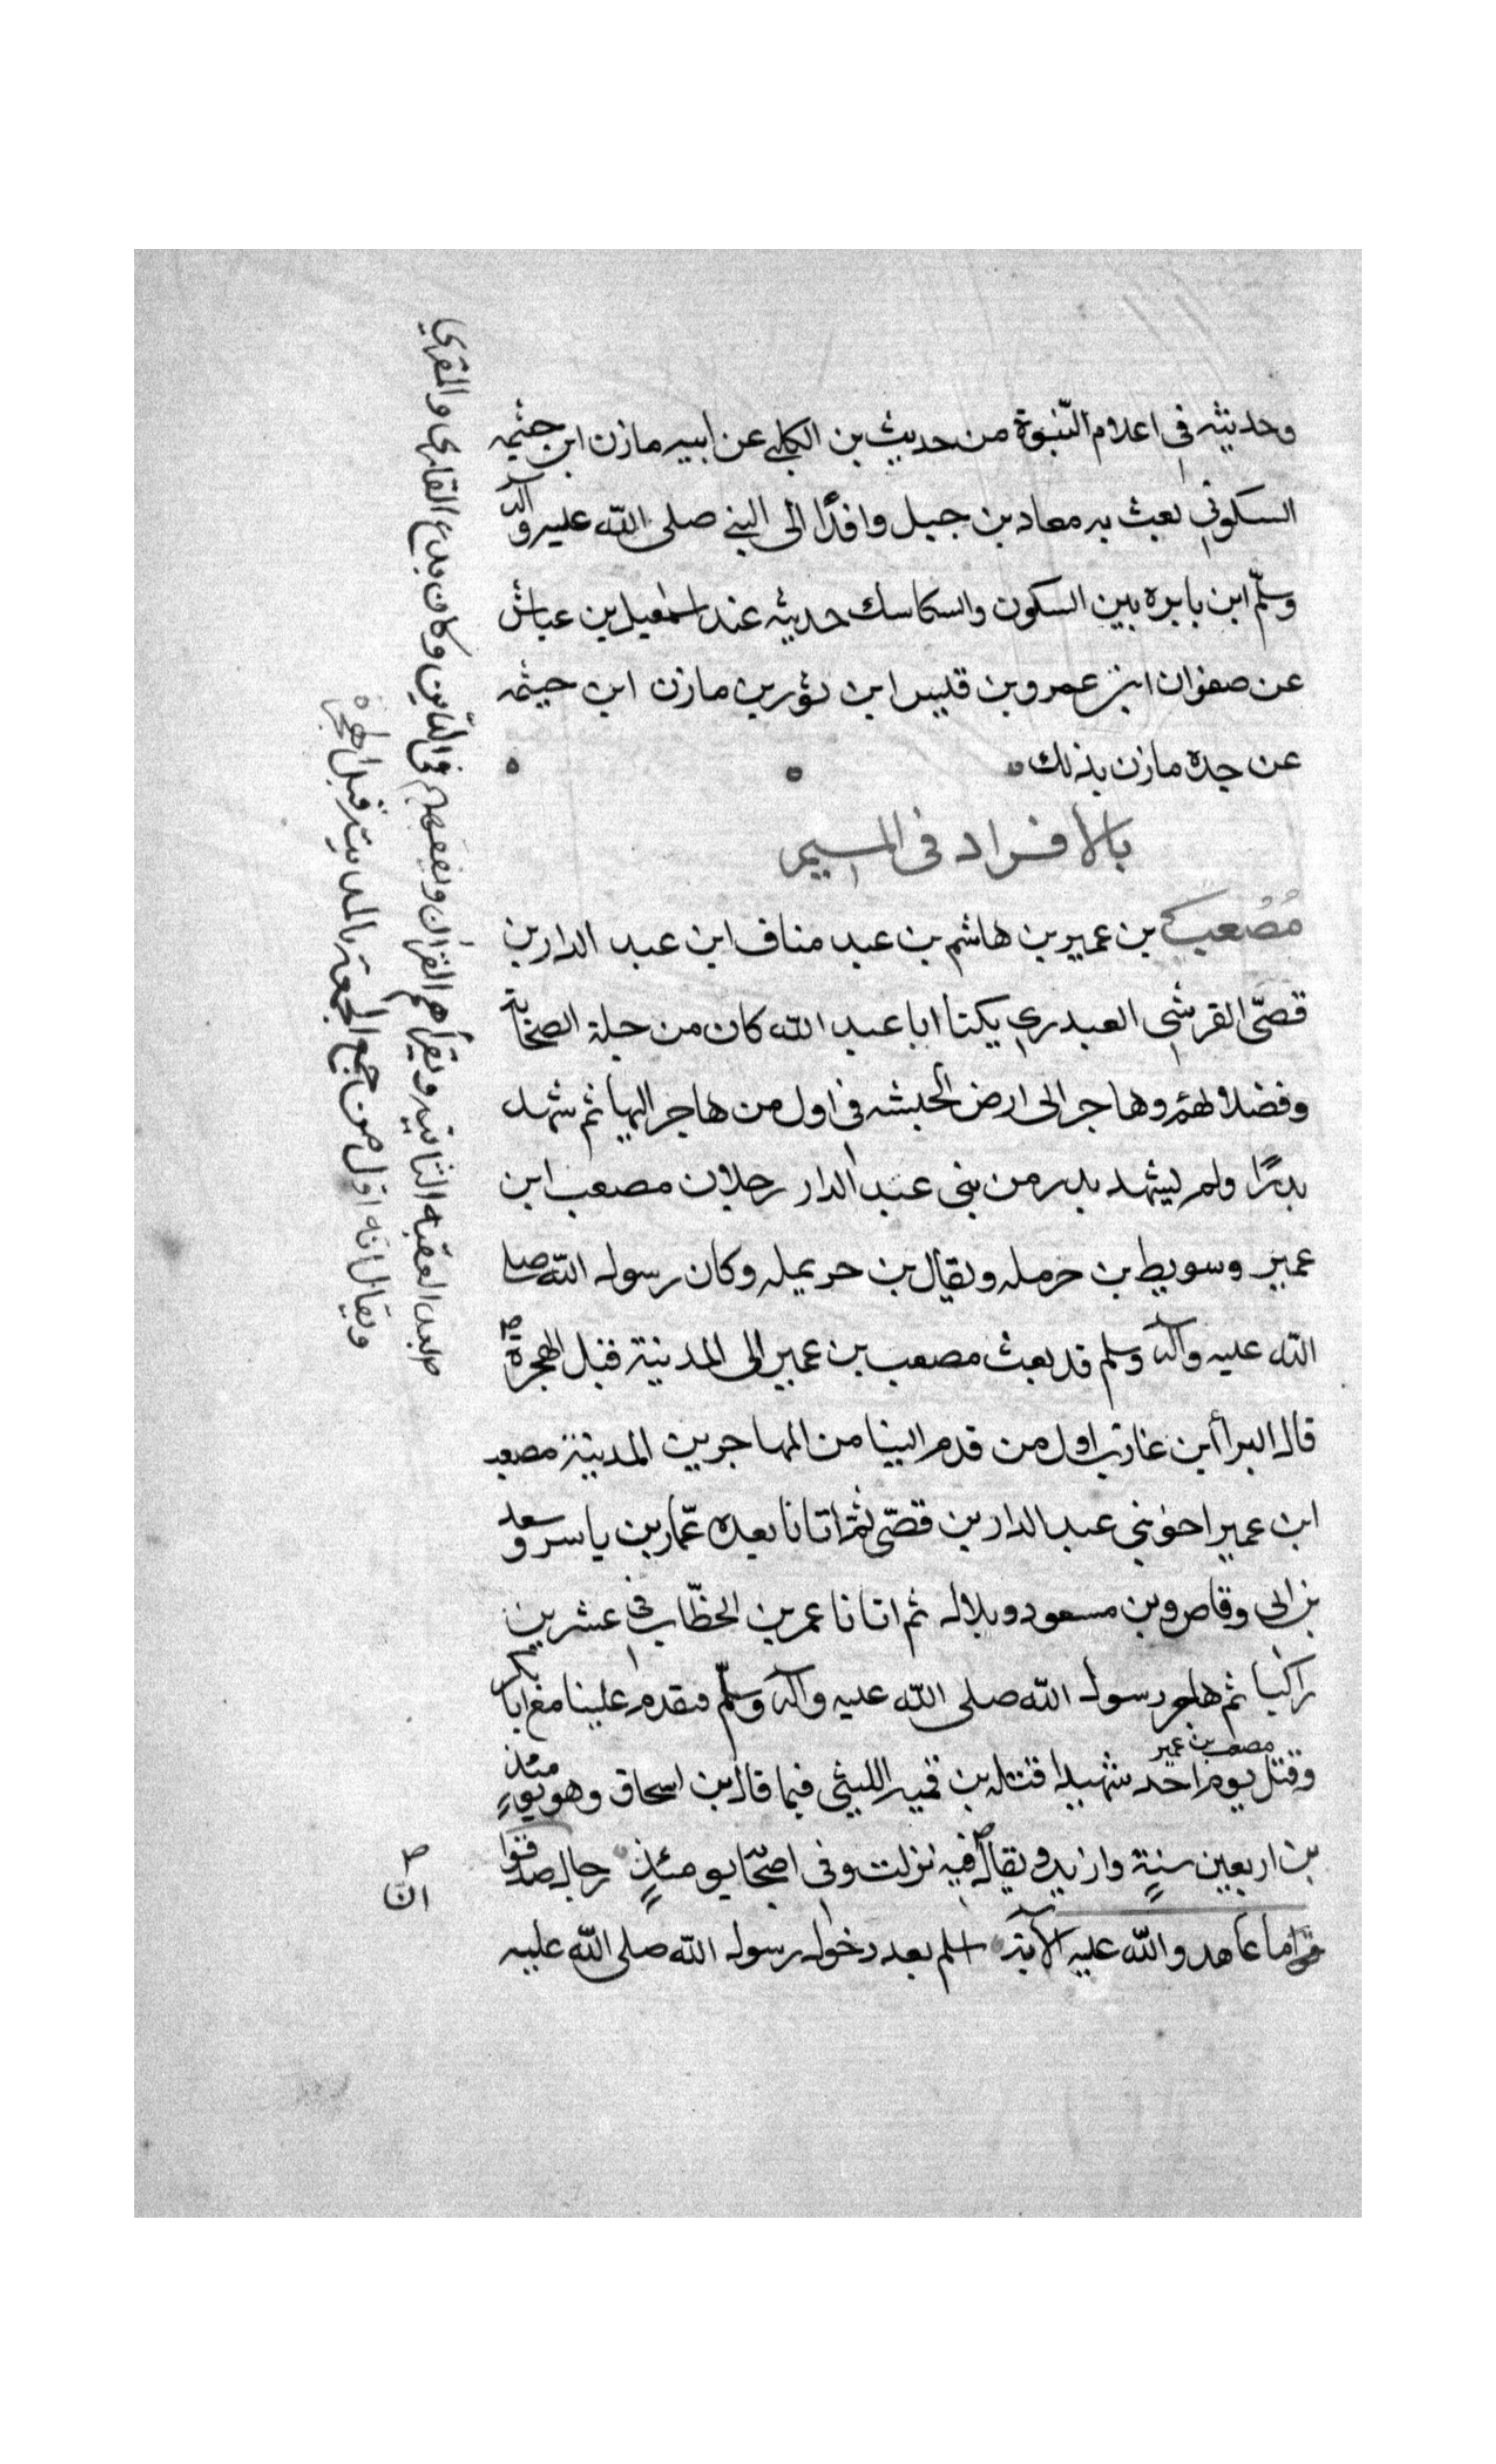 وحديثه في اعلام النبوة من حديث بن الكلبي عن ابيه مازن ابن خيثمه
السكوني بعث به معاد بن جبل وافدًا الى النبي صلى الله عليه واله
وسلّم ابن بابره بين السكون والسكاسك حديثه عند اسمعيل بن عباش
عن صفوان ابن عمرو بن قليس ابن ثور بن مازن ابن خيثمه
عن جده مازن بذلك
بالافراد في الميم
مُصُعب بن عمير بن هاشم بن عبد مناف ابن عبد الدار بن
قصّي القرشي العبدري يكنا ابا عبد الله كان من جلة الصحابة
وفضلا لهم وهاجر الى ارض الحبشه في اول من هاجر اليها ثم شهد
بدرًا ولم يشهد بدر من بني عبد الدار رجلان مصعب ابن
عمير وسويط بن حرمله ويقال بن حريمله وكان رسول الله صلى
الله عليه واله وسلم قد بعث مصعب بن عمير الى المدينة قبل الهجرة
قال البرأ ابن عازب اول من قدم الينا من المهاجرين المدينة مصعب
ابن عمير اخو بني عبد الدار بن قصّي ثم اتانا بعده عمّار بن ياسر وسعد
بن ابي وقاص وبن مسعود وبلال ثم اتانا عمر بن الخطّاب في عشرين
راكبا ثم هاجر رسول الله صلى الله عليه واله وسلّم فقدم علينا مع ابا بكر
وقتل مصعب بن عمير يوم احد شهيدا قتله بن قميه الليثي فيما قال بن اسحاق وهو يومئذ
بن اربعين سنةٍ وازيد ويقال فيه نزلت وفي اصحابه يومئذٍ رجال صدقوا
ما عاهدوالله عليه الآية اسلم بعد دخول رسول الله صلى الله عليه
بعد العقبه الثانيه ويقرأهم القرأن ويفقههم في الدّين وكان يدع القارى والمقري
ويقال انه اول من جمع الجمعة بالمدينة قبل الهجرة